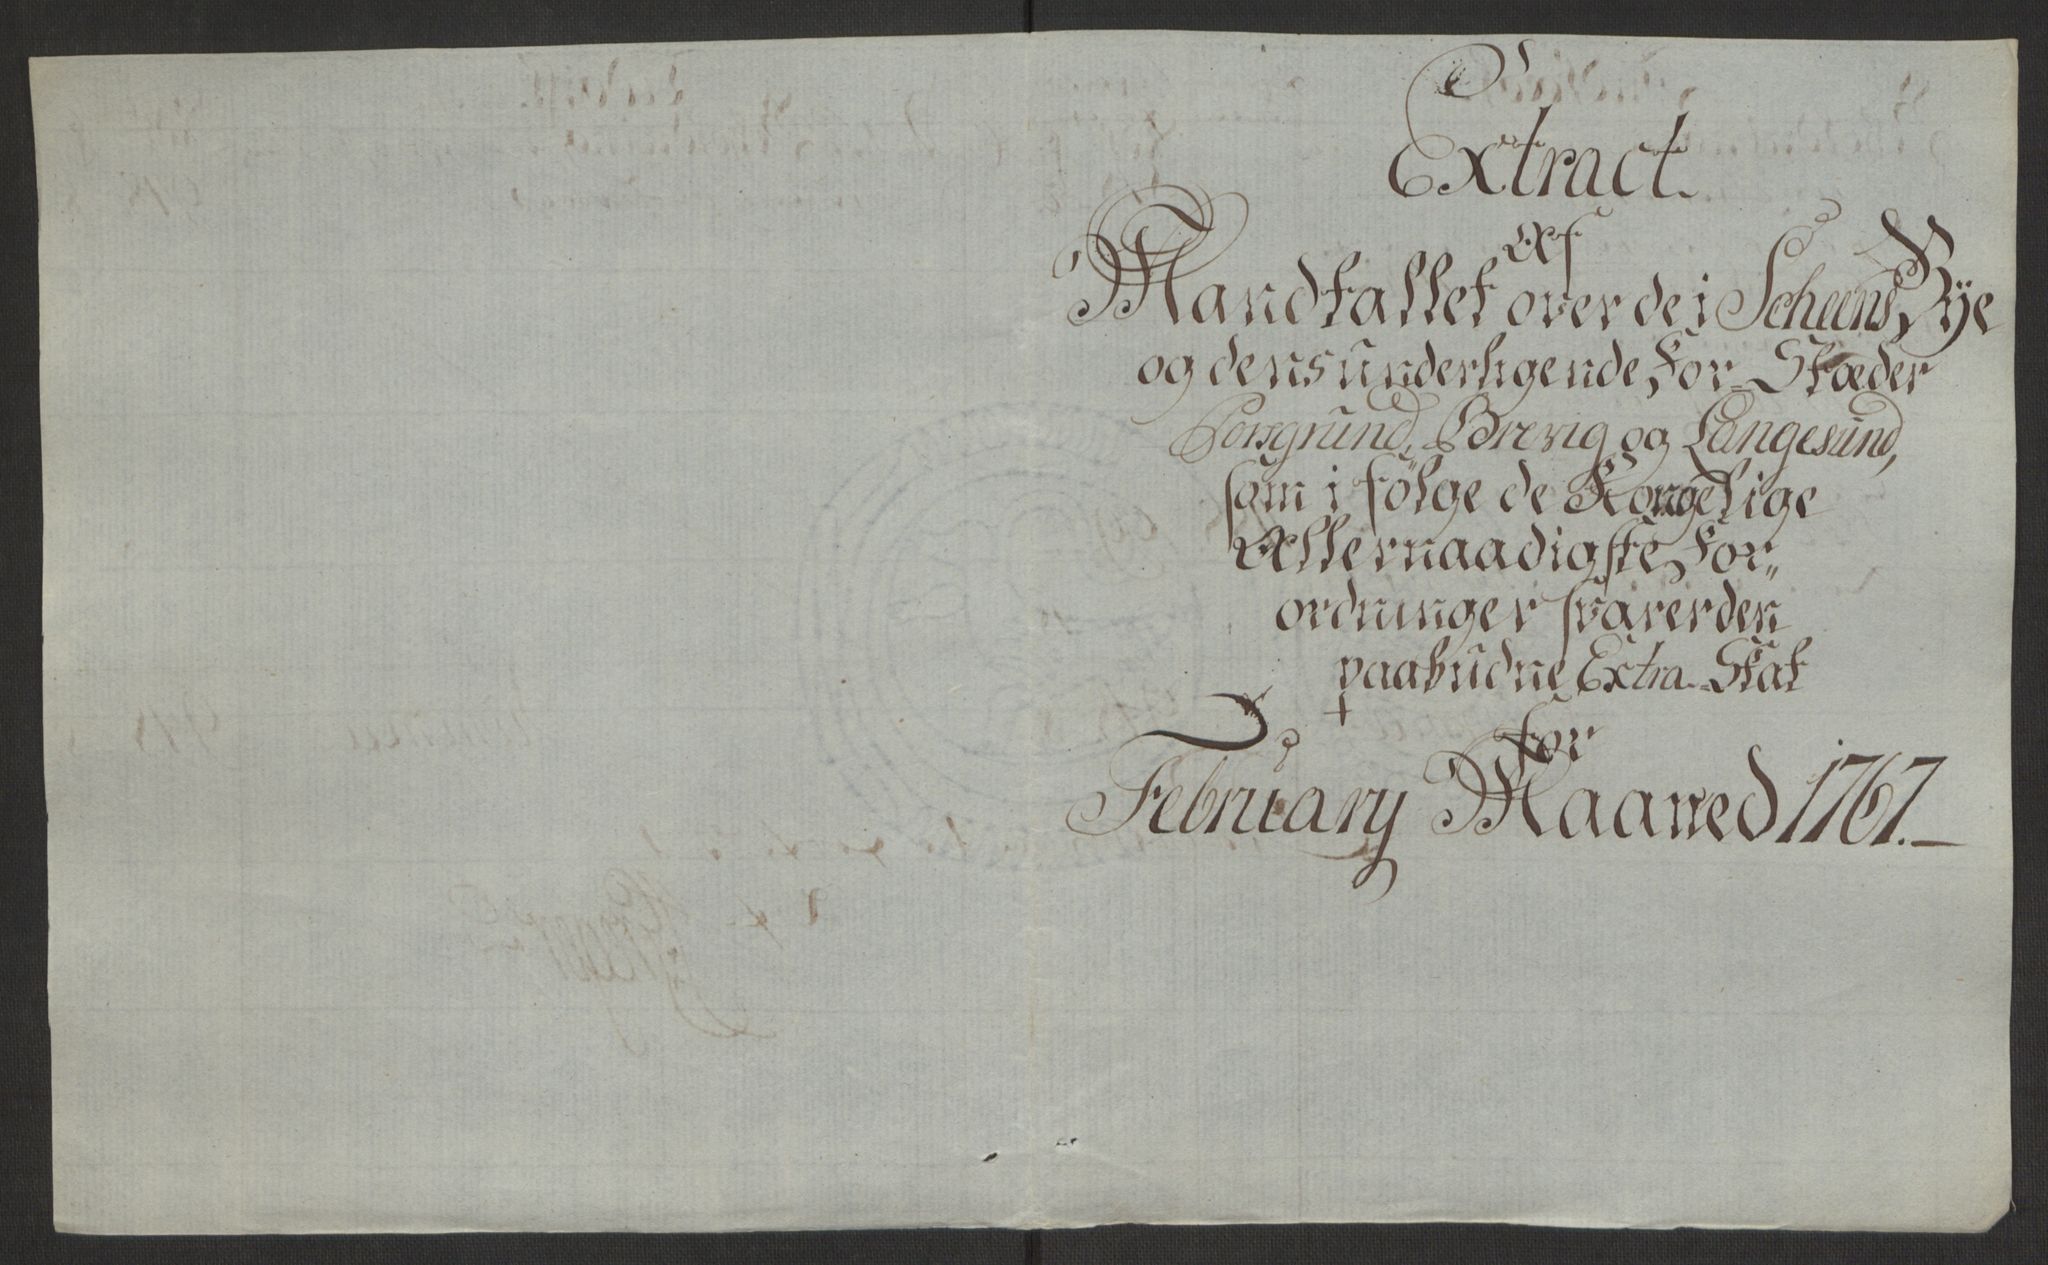 Extract
Af
Mandtallet over de i Scheens Bye
og dens underligende For-Stæder
Porsgrund, Brevig og Langesund,
som i følge de Kongelige
Allernaadigste For„
ordninger svarer den
paabudne Extra-Skat
for
February Maaned 1767.